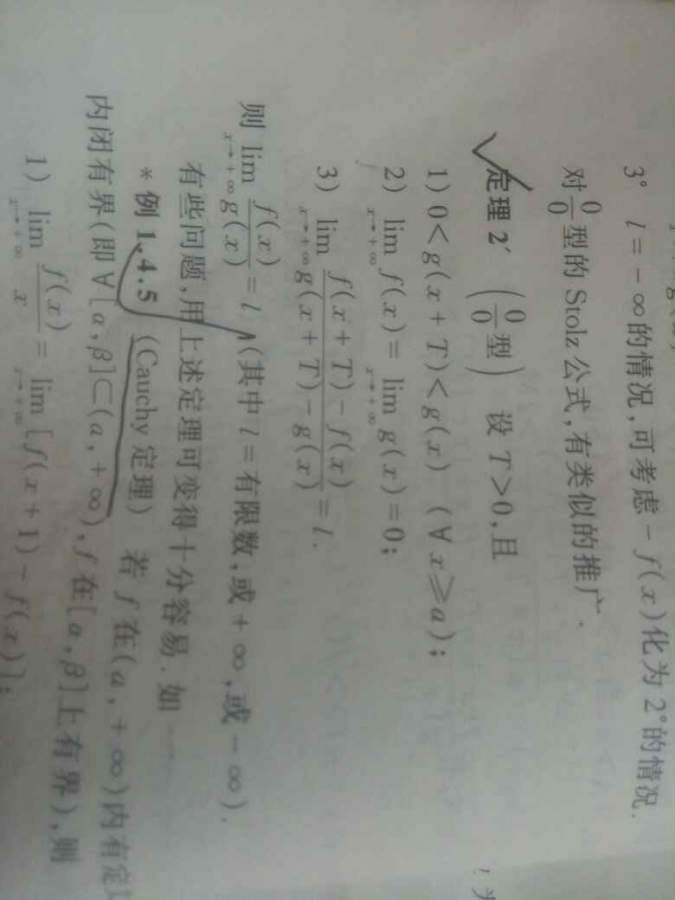 3° l = -∞的情况,可考虑-f(x)化为2°的情况.
对0/0型的 Stolz 公式,有类似的推广.
定理 2′ (0/0型) 设 T>0,且
1) 0<g(x+T)<g(x) (∀x≥a);
2) lim_{x→+∞} f(x) = lim_{x→+∞} g(x) = 0;
3) lim_{x→+∞} (f(x+T)-f(x))/(g(x+T)-g(x)) = l.
则 lim_{x→+∞} f(x)/g(x) = l (其中 l = 有限数,或+∞,或-∞).
有些问题,用上述定理可变得十分容易.如
*例 1.4.5 (Cauchy 定理) 若 f 在(a,+∞)内有定
内闭有界(即∀[α,β]⊂(a,+∞),f 在[α,β]上有界),则
1) lim_{x→+∞} f(x)/x = lim_{x→+∞} [f(x+1)-f(x)];